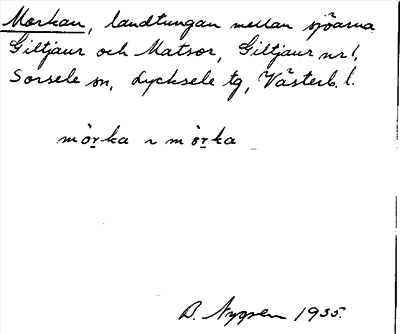 Morkan, landtungan mellan sjöarna
Giltjaur och Matsor, Giltjaur nr 1,
Sorsele sn, Lycksele tg, Västerb. l.
mȯr̲ka ~ mȯr̲ka
D. Nygren 1935.